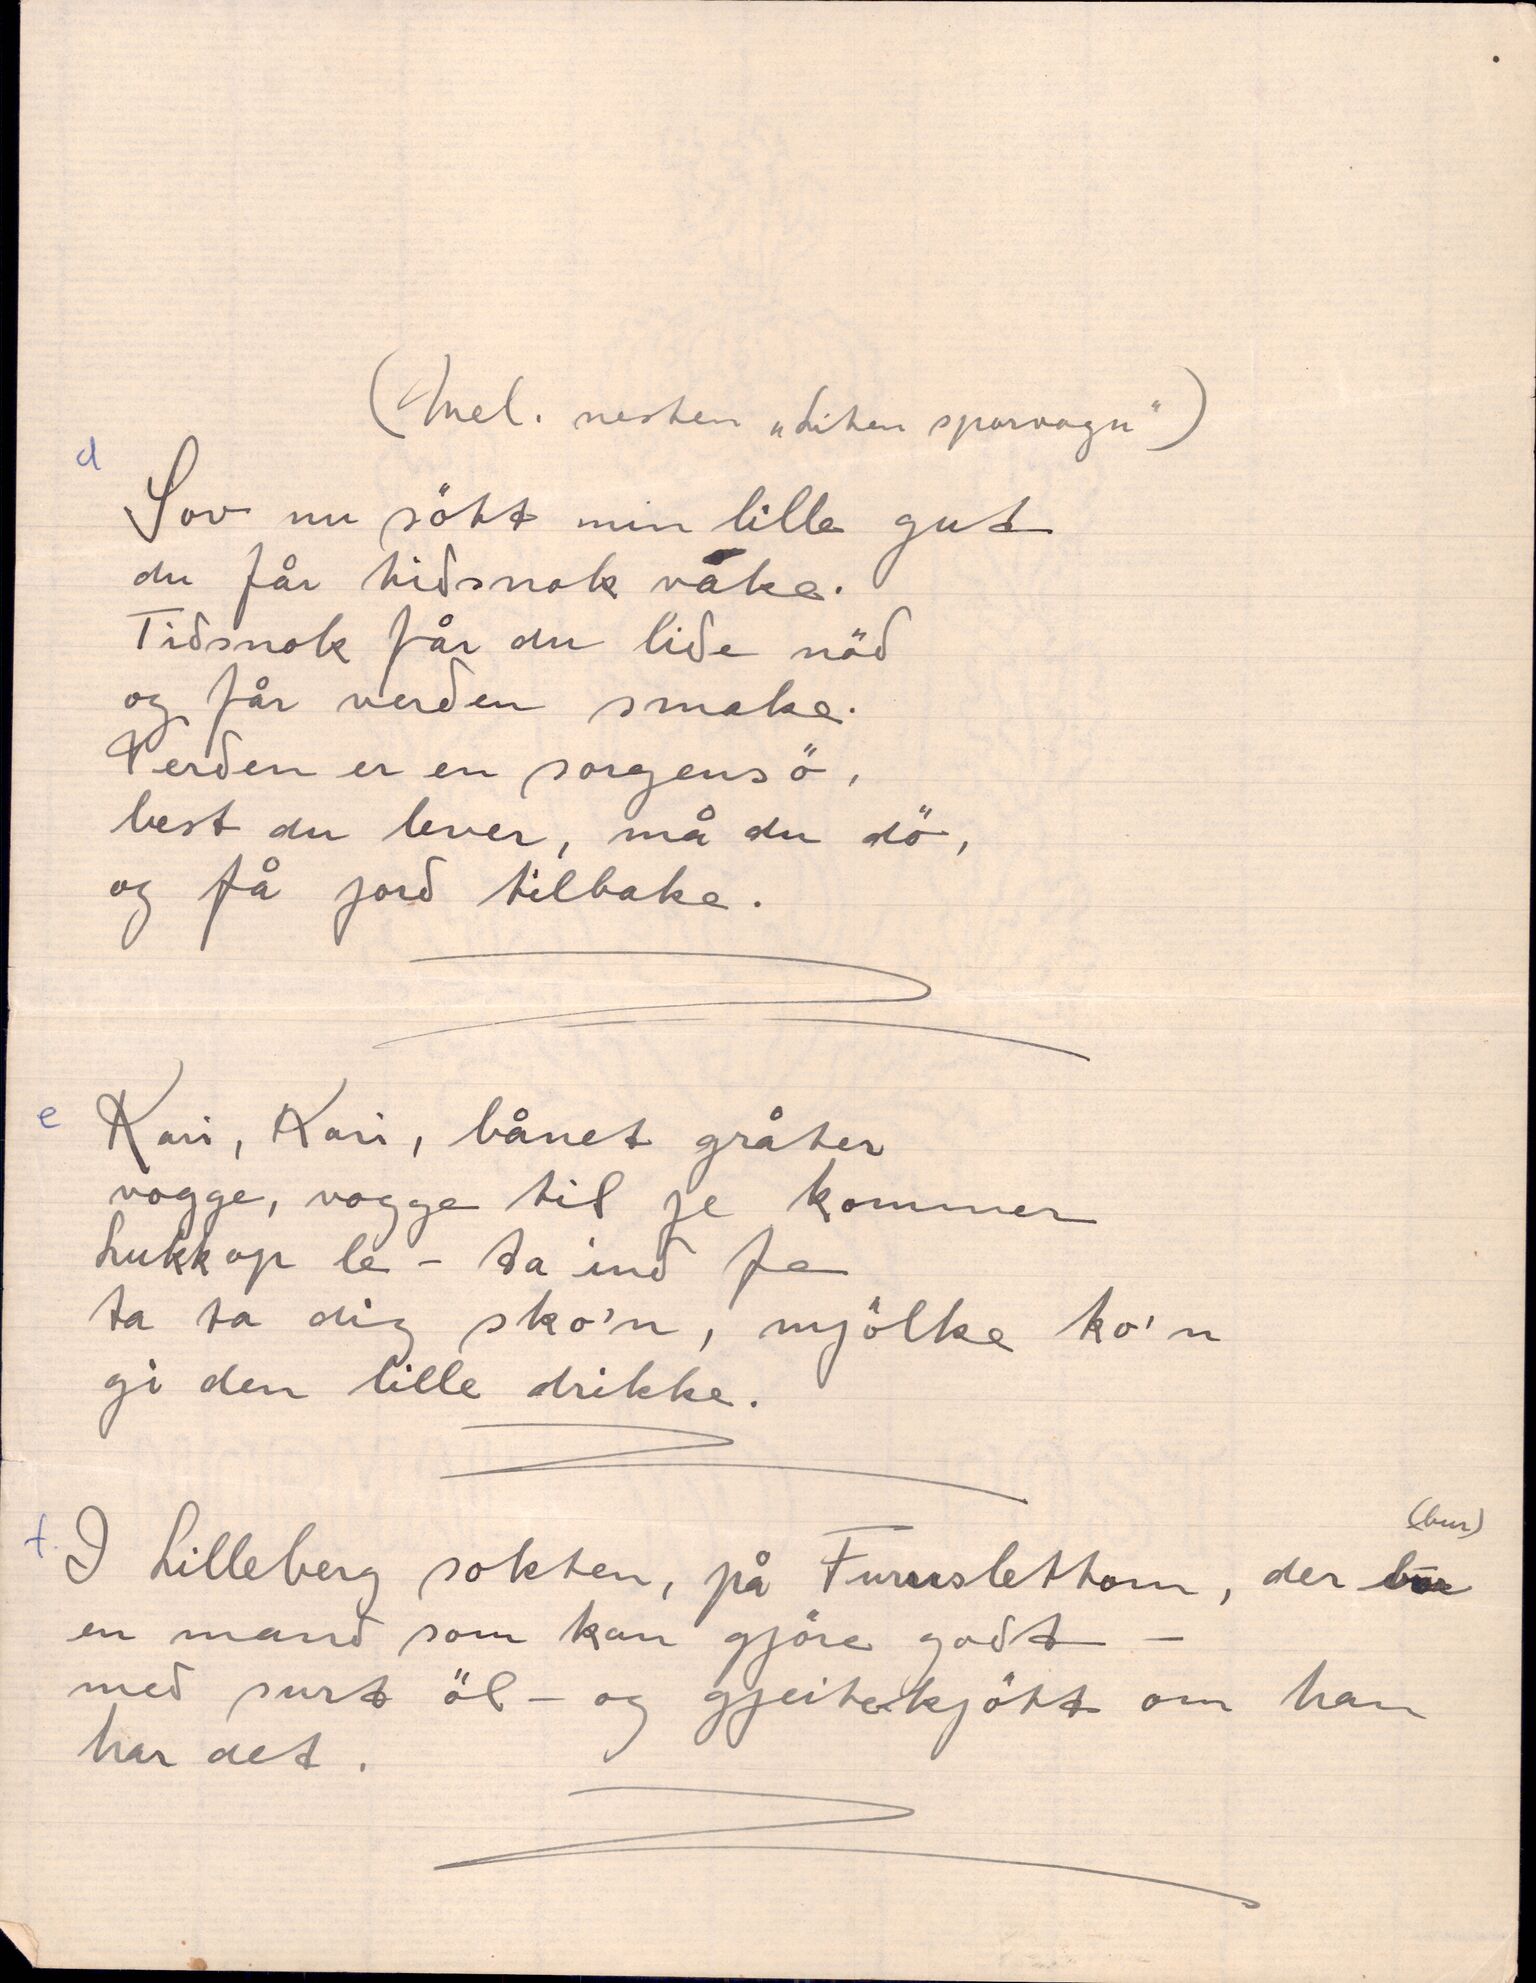 (Mel. nesten „Liten sporvogn")
d
Sov nu sött min lille gut
du får tidsnok våke.
Tidsnok får du lide nöd
og får verden smake.
Verden er en sorgensö,
best du lever, må du dö,
og få jord tilbake.
e Kari, Kari, bånet gråter
vogge, vogge til je kommer
Lukk op le - ta ind fe
ta ta dig sko'n, mjölke ko'n
gi den lille drikke.
(bur)
f. I Lilleberg sokten, på Furuslettom, der bor
en mand som kan gjöre godt -
med surt öl - og gjeitekjött om han
har det.